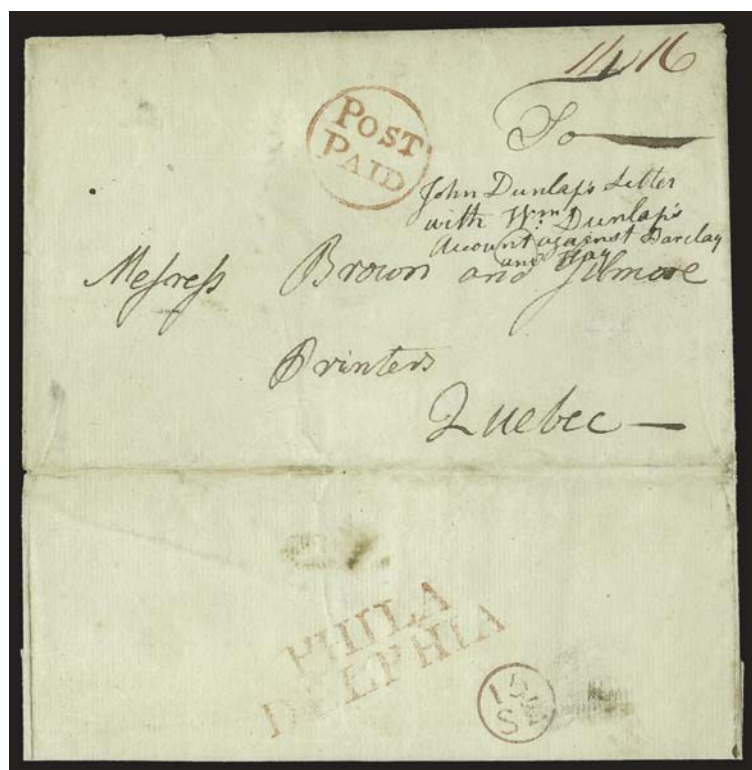 1N16
POST
PAID
To
John Dunlap's Letter
with Wm Dunlap's
Account against Barclay
and Hay
Messress Brown and Gilmore
Printers
Quebec —
PHILA
DELPHIA
15
S